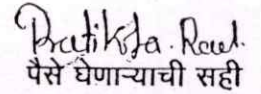 Pratiksha. Raut.
पैसे घेणाऱ्याची सही